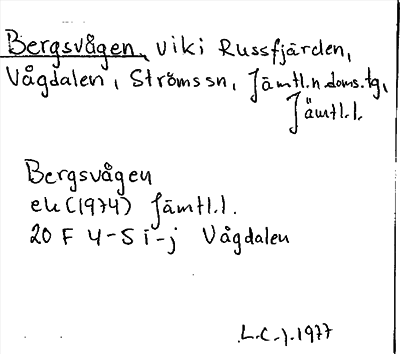 Bergsvågen, vik i Russfjärden,
Vågdalen, Ströms sn, Jämtl.n.doms.tg,
Jämtl.l.
Bergsvågen
ek (1974) Jämtl.l.
20 F 4-5 i-j Vågdalen
L.C.J. 1977